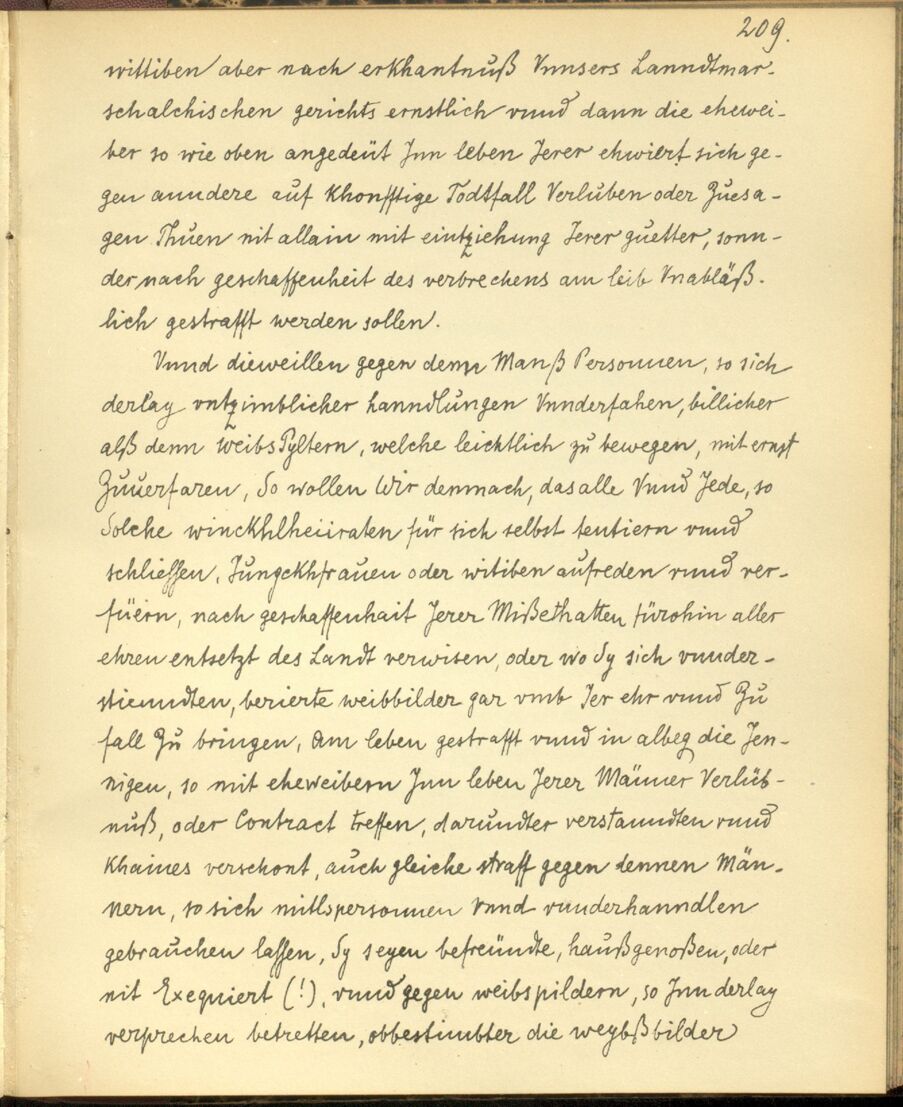 209.
wittiben aber nach erkhantnuß Vnnsers Lanndtmar-
schalchischen gerichts ernstlich vnnd dann die ehewei-
ber so wie oben angedeüt Inn leben Jerer ehwiert sich ge-
gen anndere auf khonfftige Todtfall Verluben oder Zuesa-
gen Thuen nit allain mit eintziehung Jerer guetter, sonn-
der nach geschaffenheit des verbrechens am leib Vnabläß-
lich gestrafft werden sollen.
Vnnd dieweillen gegen denn Manß Personnen, so sich
derlay vntzimblicher hanndlungen Vnnderfahen, billicher
alß denn weibsPyltern, welche leichtlich zu bewegen, mit ernst
Zuuerfaren, So wollen Wir demnach, das alle Vnnd Jede, so
Solche winckhlheiiraten für sich selbst tentiern vnnd
schliessen, Jungckhfrauen oder witiben aufreden vnnd ver-
füern, nach geschaffenhait Jerer Mißethatten fürohin aller
ehren entsetzt des Landt verwisen, oder wo Sy sich vnnder-
stienndten, berierte weibbilder gar vmb Jer ehr vnnd Zu
fall Zu bringen, Am leben gestrafft vnnd in albeg die Jen-
nigen, so mit eheweibern Inn leben Jerer Männer Verlüb-
nuß, oder Contract treffen, darundter verstanndten vnnd
Khaines verschont, auch gleiche straff gegen dennen Män-
nern, so sich mitlspersonnen Vnnd vnnderhanndlen
gebrauchen lassen, Sy seyen befreündte, haußgenoßen, oder
nit Exequiert (!), vnnd gegen weibspildern, so Inn derlay
versprechen betretten, obbestimbter die weybßbilder